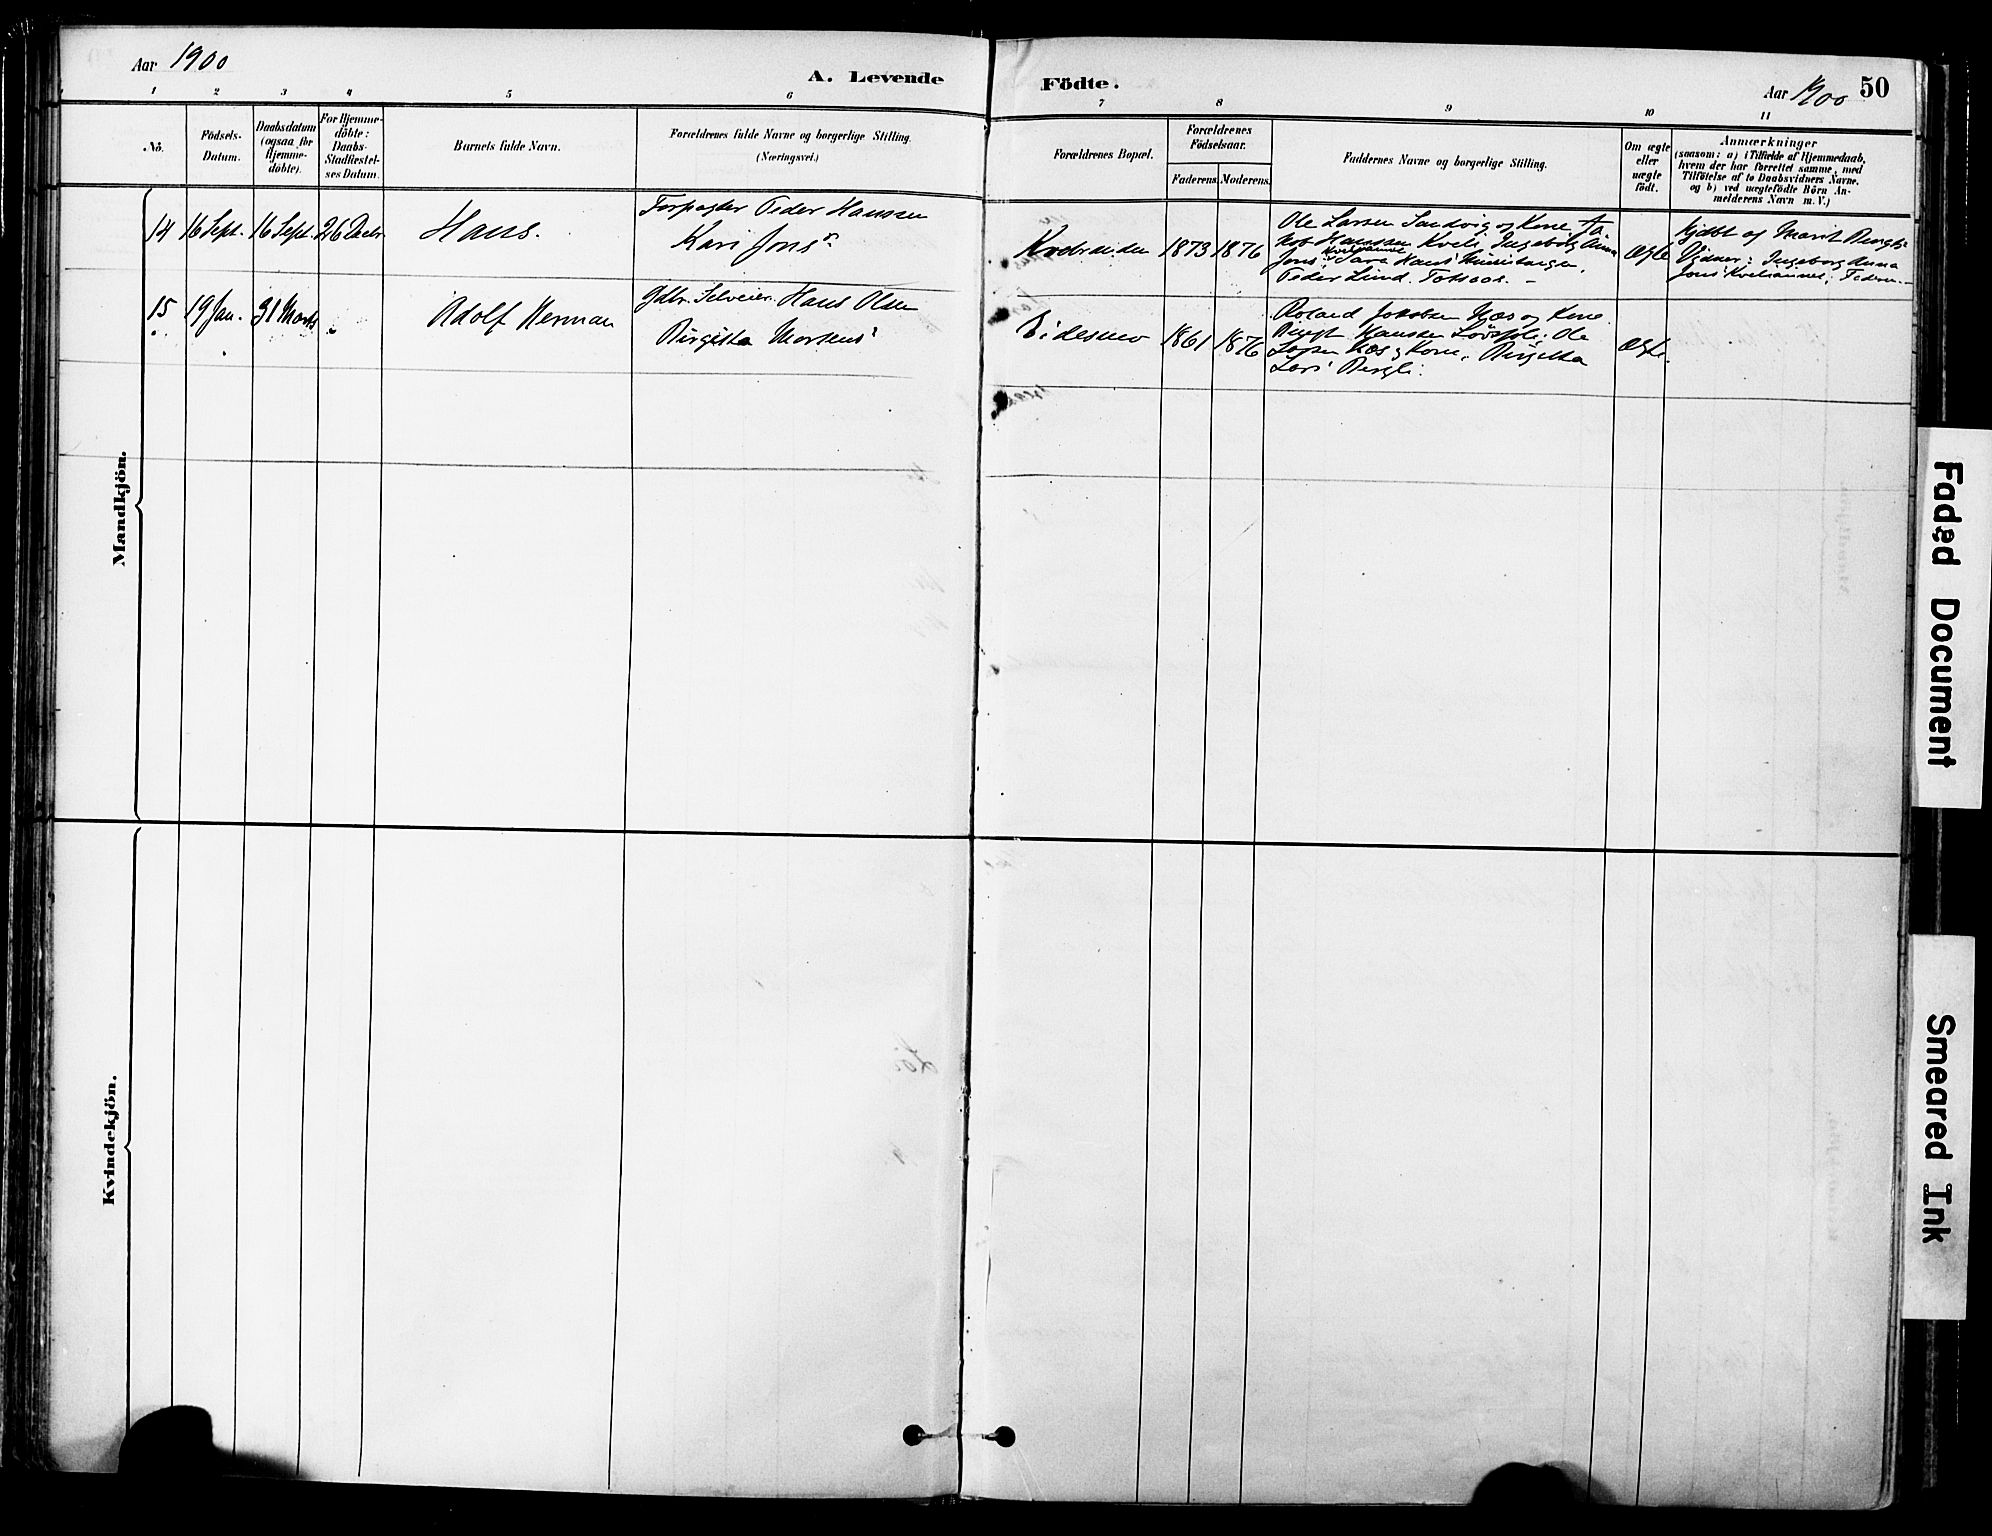 Aar 1900
A. Levende
Födte.
Aar 1900
50
1 2 3 4 5 6 7 8 9 10 11
No.
Födsels-
Datum.
Daabsdatum
(ogsaa for
Hjemme-
döbte).
For Hjemme-
döbte:
Daabs-
Stadfæstel-
ses Datum.
Barnets fulde Navn.
Forældrenes fulde Navne og borgerlige Stilling.
(Næringsvei.)
Forældrenes Bopæl.
Forældrenes
Födselsaar.
Faderens.
Moderens.
Faddernes Navne og borgerlige Stilling.
Om ægte
eller
uægte
födt.
Anmærkninger
(saasom: a) i Tilfælde af Hjemmedaab,
hvem der har forrettet samme, med
Tilföielse af to Daabsvidners Navne.
og b) ved uægtefödte Börn An-
melderens Navn m. V.)
Mandkjön.
14
16 Sept.
16 Sept.
26 Decbr.
Hans.
Forpagter Peder Hanssen
Kari Jonsd.
1873
1876
Ole Larsen Sandvig og Kone
Hanssen Kveli, Ingeborg Anna
Jons Sara Hans
Peder Lund.
Ægte
Hjdbt af Marit Bergli
Vidner: Ingeborg Anna
Jons
15
19 Jan.
31 Marts
Adolf Herman
Gdbr. Selveier. Hans Olsen
Birgitta Mortens
Eidesmo
1861
1876
Roland Jakobsen Næs og Kone
Bengt Hanssen Ole
Larsen Næs og Kone, Birgitta
Lars Bergli.
Ægte.
Kvindekjön.
Faded Document
Smeared Ink